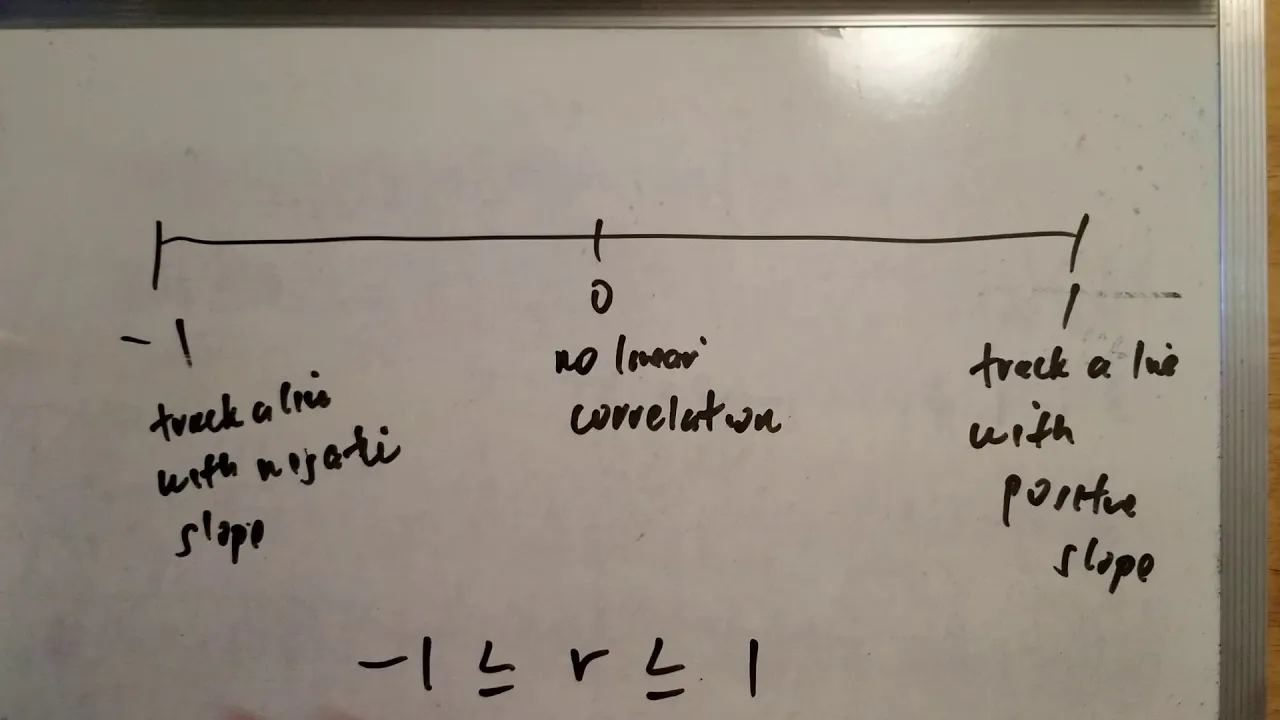 -1
track a line
with negati
slope
0
no linear
correlation
1
track a line
with
positive
slope
-1 ≤ r ≤ 1